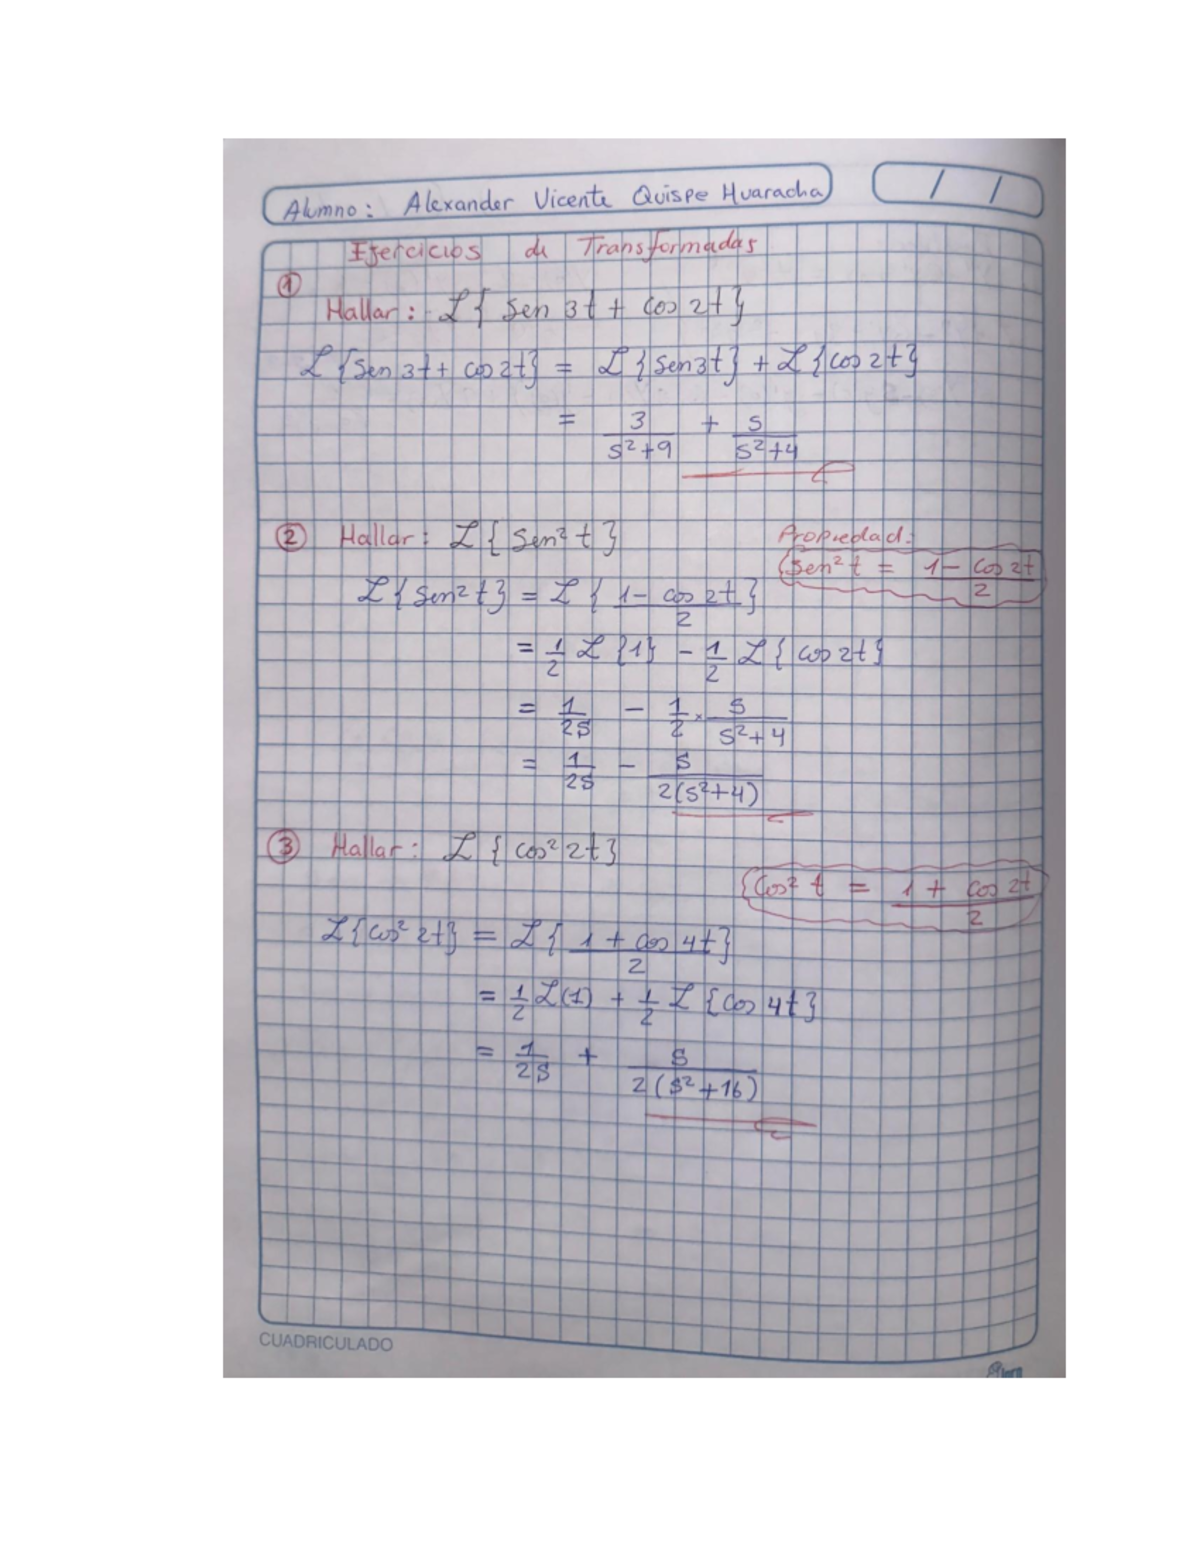 Alumno: Alexander Vicente Quispe Huaracha / /
Ejercicios de Transformadas
① Hallar: ℒ{ sen 3t + cos 2t }
ℒ{sen 3t + cos 2t} = ℒ{sen 3t} + ℒ{cos 2t}
= 3/(s²+9) + s/(s²+4)
② Hallar: ℒ{ sen² t }
Propiedad:
sen² t = (1 - cos 2t)/2
ℒ{sen² t} = ℒ{ (1 - cos 2t)/2 }
= 1/2 ℒ{1} - 1/2 ℒ{cos 2t}
= 1/2s - 1/2 × s/(s²+4)
= 1/2s - s/(2(s²+4))
③ Hallar: ℒ{ cos² 2t }
{cos² t = (1 + cos 2t)/2
ℒ{cos² 2t} = ℒ{ (1 + cos 4t)/2 }
= 1/2 ℒ(1) + 1/2 ℒ{cos 4t}
= 1/2s + s/(2(s²+16))
CUADRICULADO